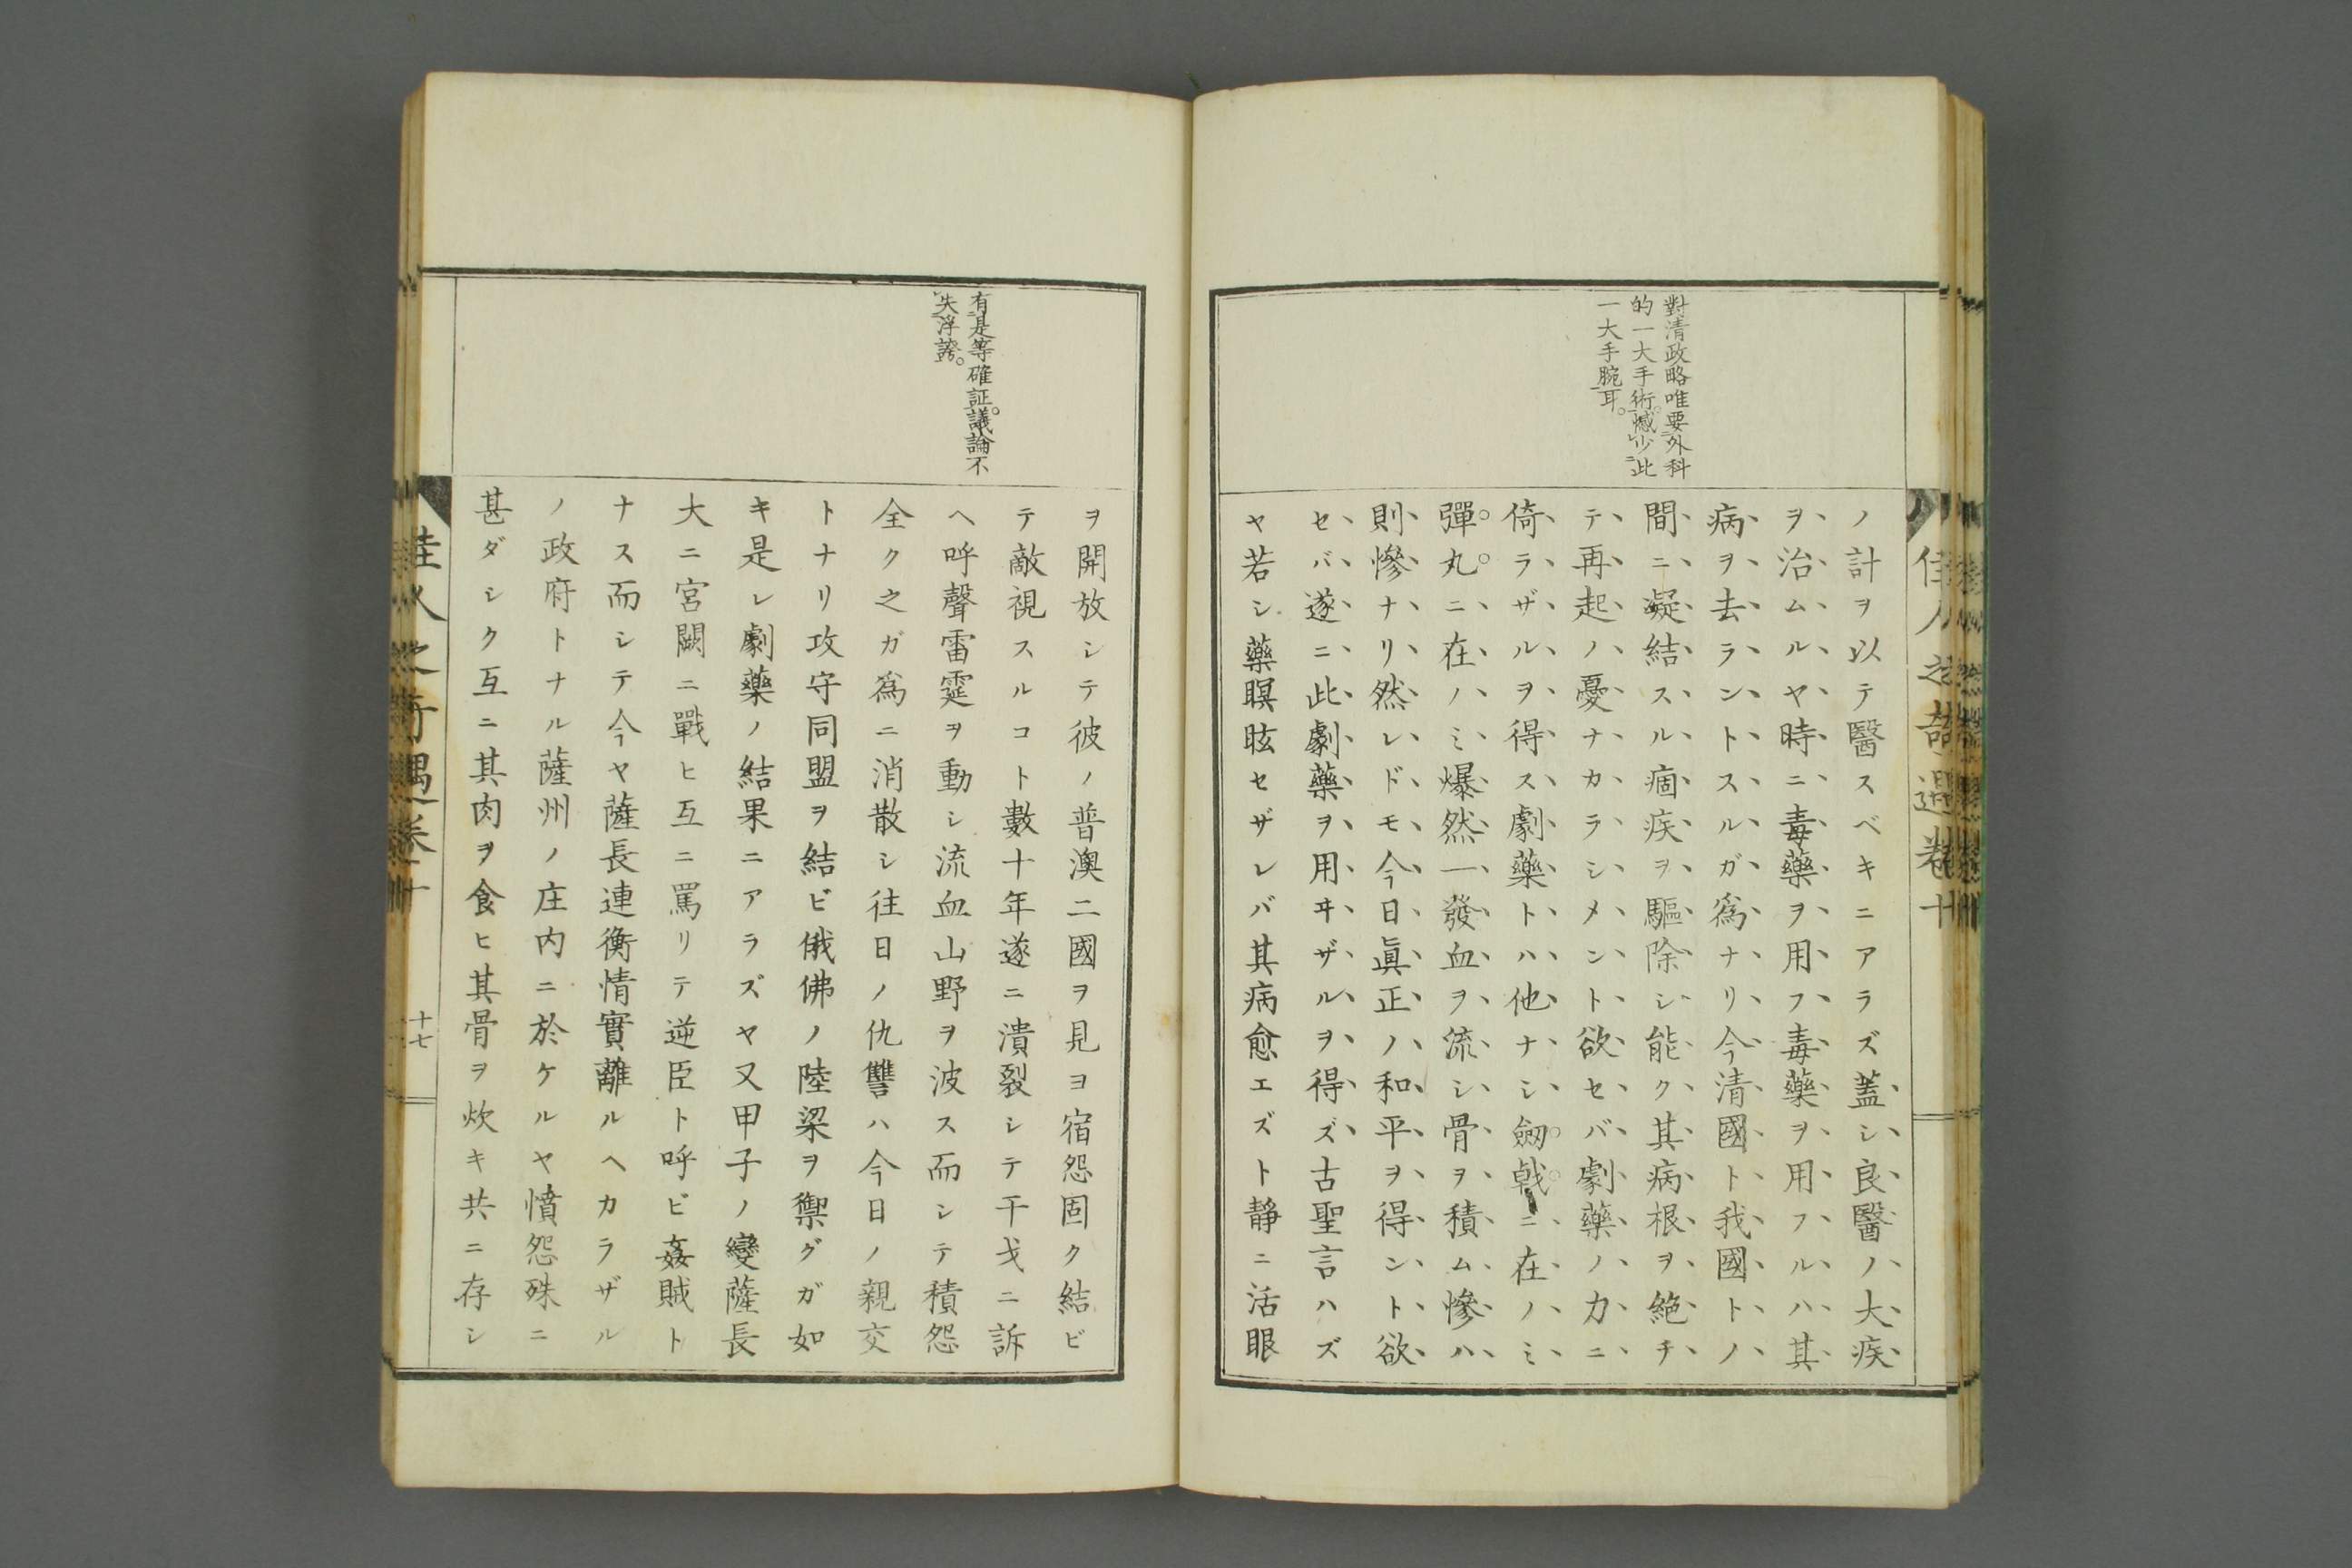 佳人之奇遇卷十
對清政略唯要外科
的一大手術。憾少此
一大手腕耳。
ノ計ヲ以テ醫スベキニアラズ蓋シ良醫ノ大疾
ヲ治ムルヤ時ニ毒藥ヲ用フ毒藥ヲ用フルハ其
病ヲ去ラントスルガ爲ナリ今清國ト我國トノ
間ニ凝結スル痼疾ヲ驅除シ能ク其病根ヲ絶チ
テ再起ノ憂ナカラシメント欲セバ劇藥ノ力ニ
倚ラザルヲ得ス劇藥トハ他ナシ劔戟ニ在ノミ
彈丸ニ在ノミ爆然一發血ヲ流シ骨ヲ積ム慘ハ
則慘ナリ然レドモ今日眞正ノ和平ヲ得ント欲
セバ遂ニ此劇藥ヲ用ヰザルヲ得ズ古聖言ハズ
ヤ若シ藥瞑眩セザレバ其病愈エズト靜ニ活眼
有是等確証。議論不
失浮誇。
ヲ開放シテ彼ノ普澳二國ヲ見ヨ宿怨固ク結ビ
テ敵視スルコト數十年遂ニ潰裂シテ干戈ニ訴
ヘ呼聲雷霆ヲ動シ流血山野ヲ波ス而シテ積怨
全ク之ガ爲ニ消散シ往日ノ仇讐ハ今日ノ親交
トナリ攻守同盟ヲ結ビ俄佛ノ陸梁ヲ禦グガ如
キ是レ劇藥ノ結果ニアラズヤ又甲子ノ變薩長
大ニ宮闕ニ戰ヒ互ニ罵リテ逆臣ト呼ビ姦賊ト
ナス而シテ今ヤ薩長連衡情實離ルヘカラザル
ノ政府トナル薩州ノ庄内ニ於ケルヤ憤怨殊ニ
甚ダシク互ニ其肉ヲ食ヒ其骨ヲ炊キ共ニ存シ
佳人之奇遇卷十
十七